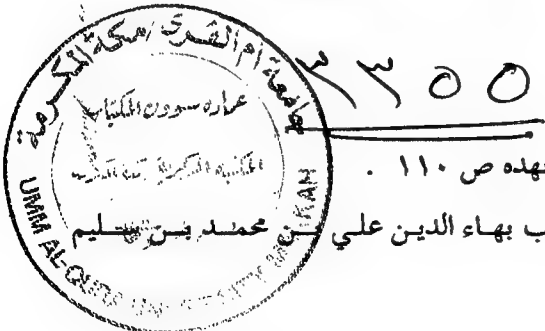 جامعة أم القرى / مكة المكرمة
عمادة شؤون المكتبات
UMM AL-QURA UNIVERSITY MAKKAH
٣٣٥٥
بهده ص ١١٠ .
ب بهاء الدين علي بن محمد بن سليم